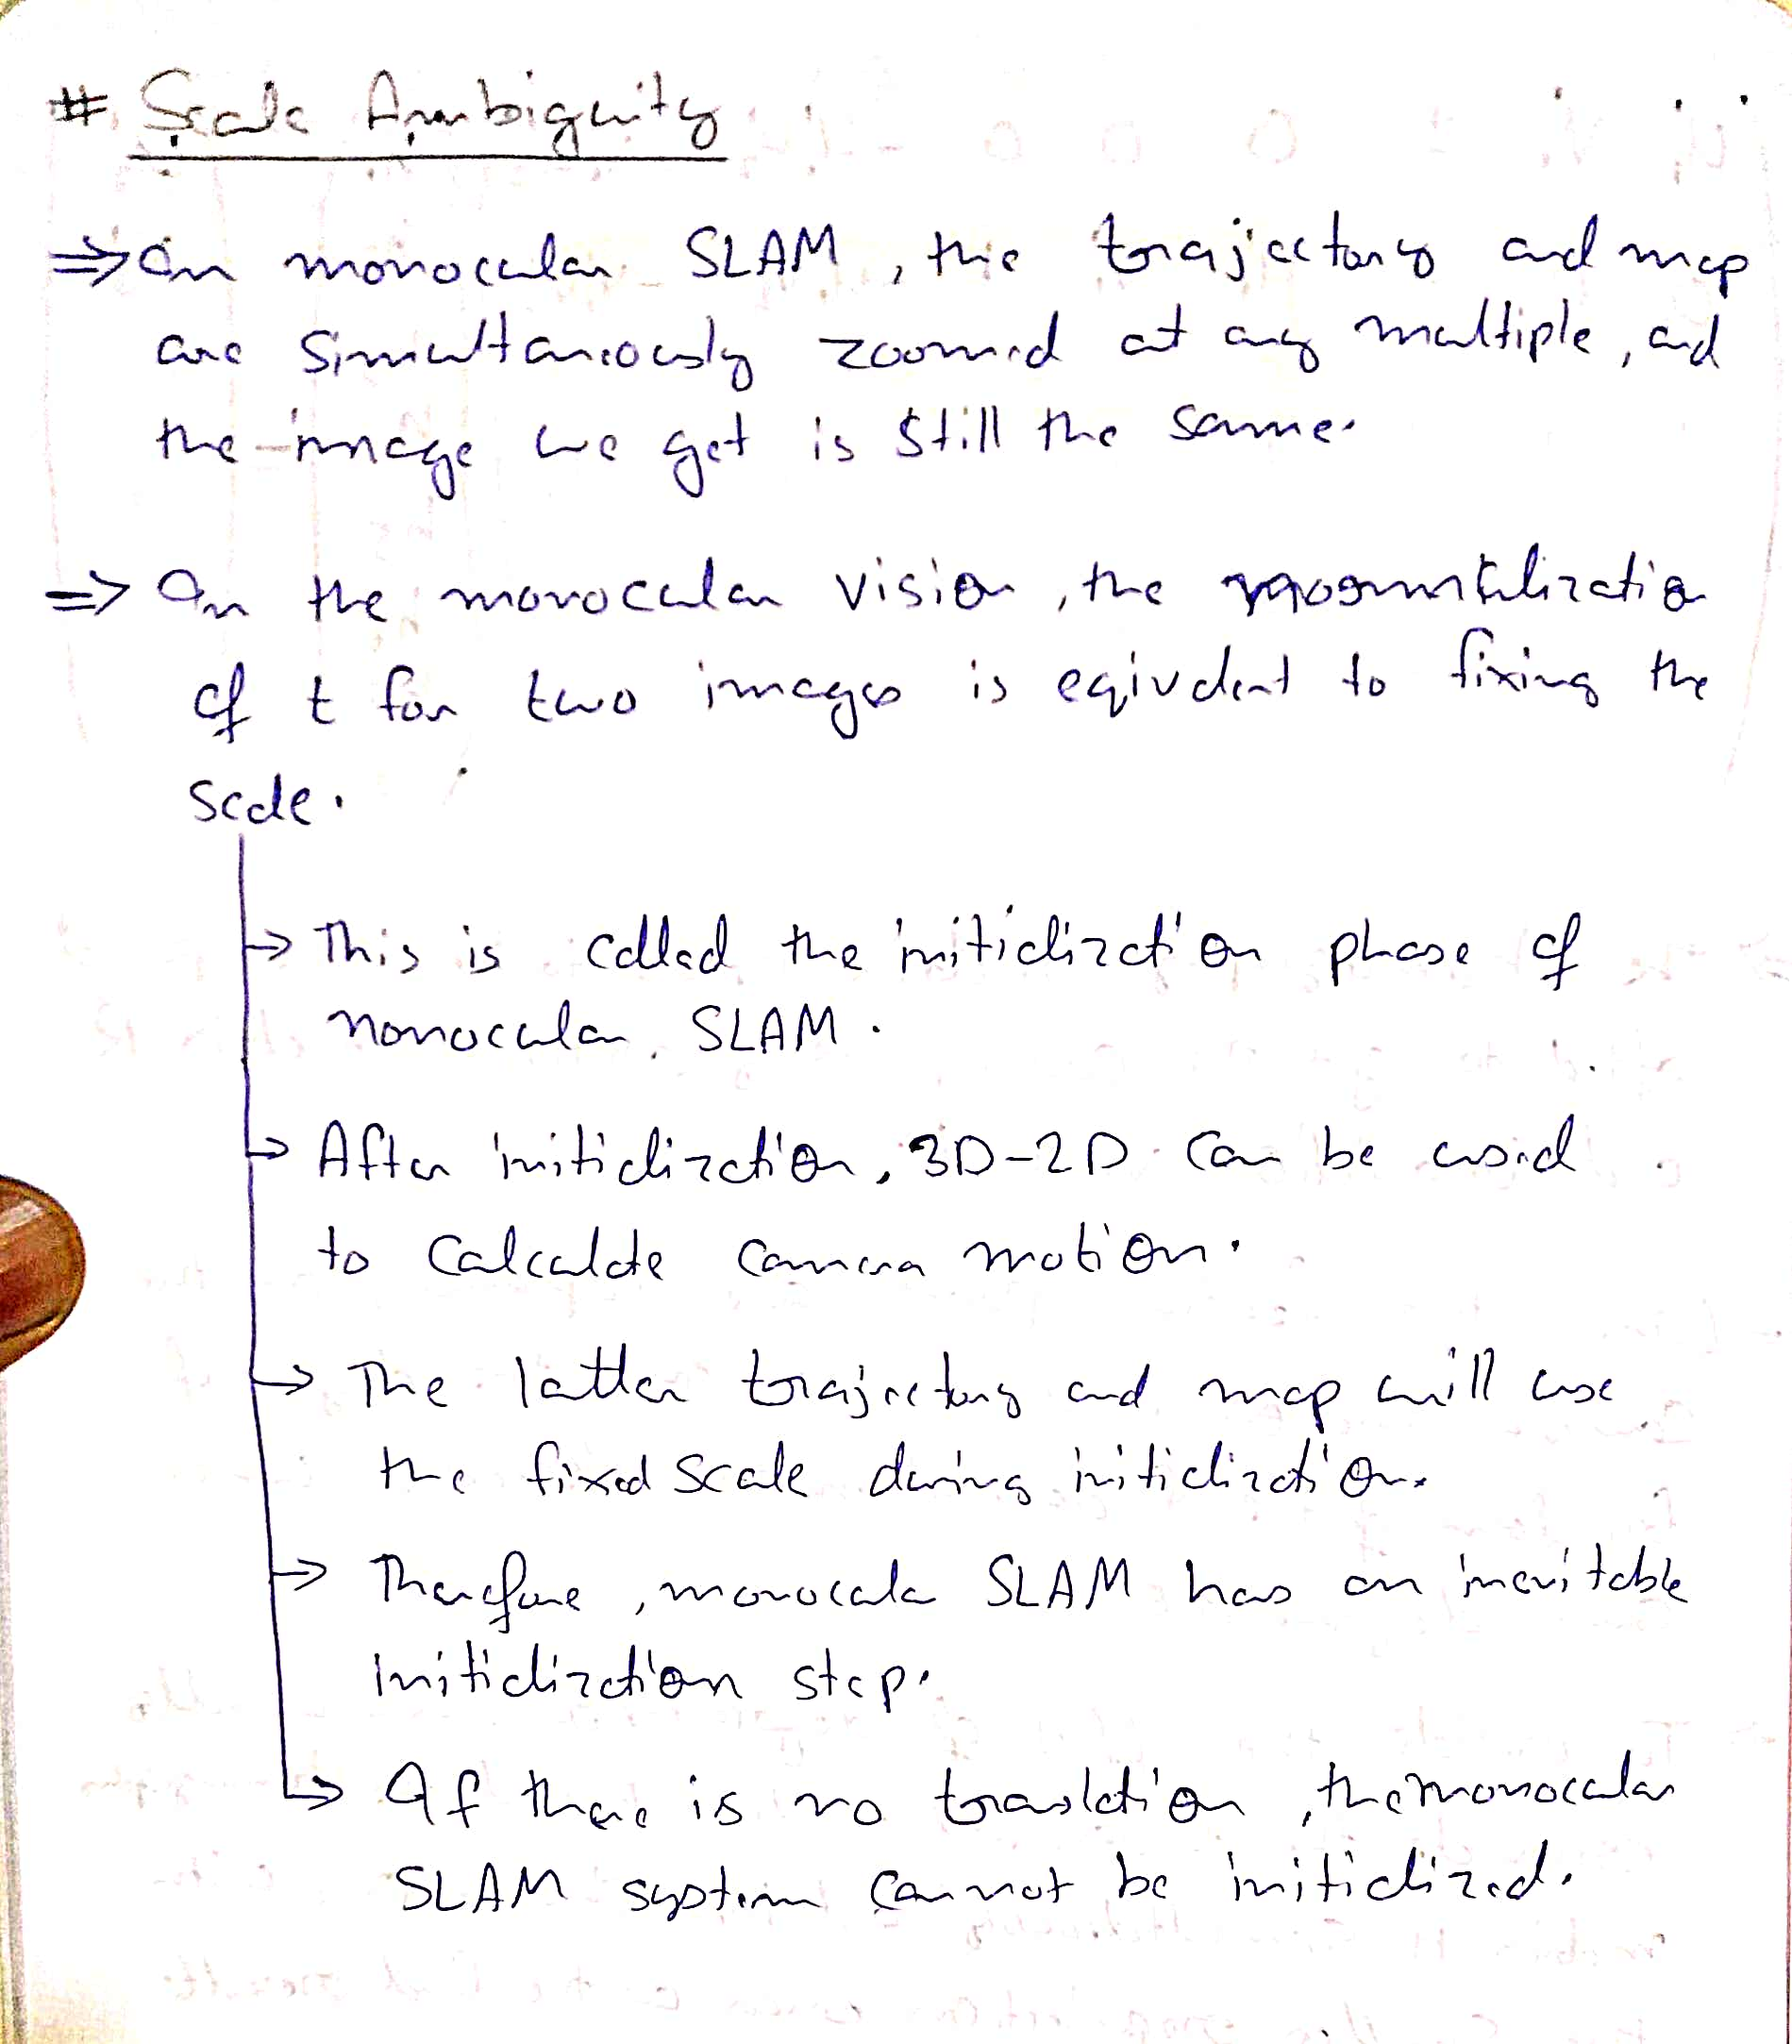 # Scale Ambiguity
⇒ In monocular SLAM, the trajectory and map
are simultaneously zoomed at any multiple, and
the image we get is still the same.
⇒ In the monocular vision, the
of t for two images is eqivalent to fixing the
scale.
→ This is called the initialization phase of
monocular SLAM.
→ After initialization, 3D-2D can be used
to calculate camera motion.
→ The latter trajectory and map will use
the fixed scale during initialization.
→ Therefore, monocula SLAM has an inevitable
initialization step.
→ If there is no translation, the monocular
SLAM system cannot be initialized.